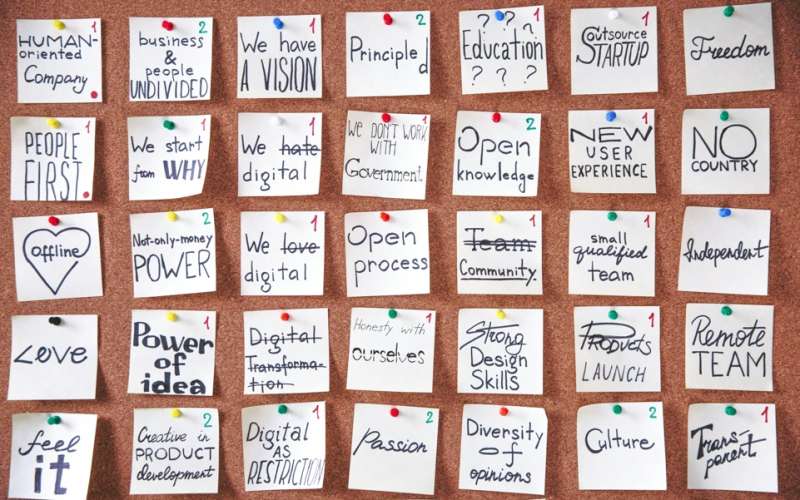 HUMAN- 1
oriented
Company
business 2
&
people
UNDIVIDED
We have 1
A VISION
Principled 2
? ? ? 1
Education
? ? ?
Outsource 1
STARTUP
Freedom
PEOPLE 1
FIRST
We start 1
from WHY
We hate
digital
We DON'T WORK 1
WITH
Government
Open 2
knowledge
NEW 1
USER
EXPERIENCE
NO
COUNTRY
offline
Not-only-money 2
POWER
We love 1
digital
Open
process
Team 1
Community
small 1
qualified
team
Independent
Love
Power 1
of
idea
Digital 1
Transforma-
tion
Honesty with 1
ourselves
Strong
Design
Skills
Products 1
LAUNCH
Remote
TEAM
feel
it
Creative in 2
PRODUCT
development
Digital 1
AS
RESTRICTION
Passion 2
Diversity
of
opinions
Culture 2
Trans- 1
parent